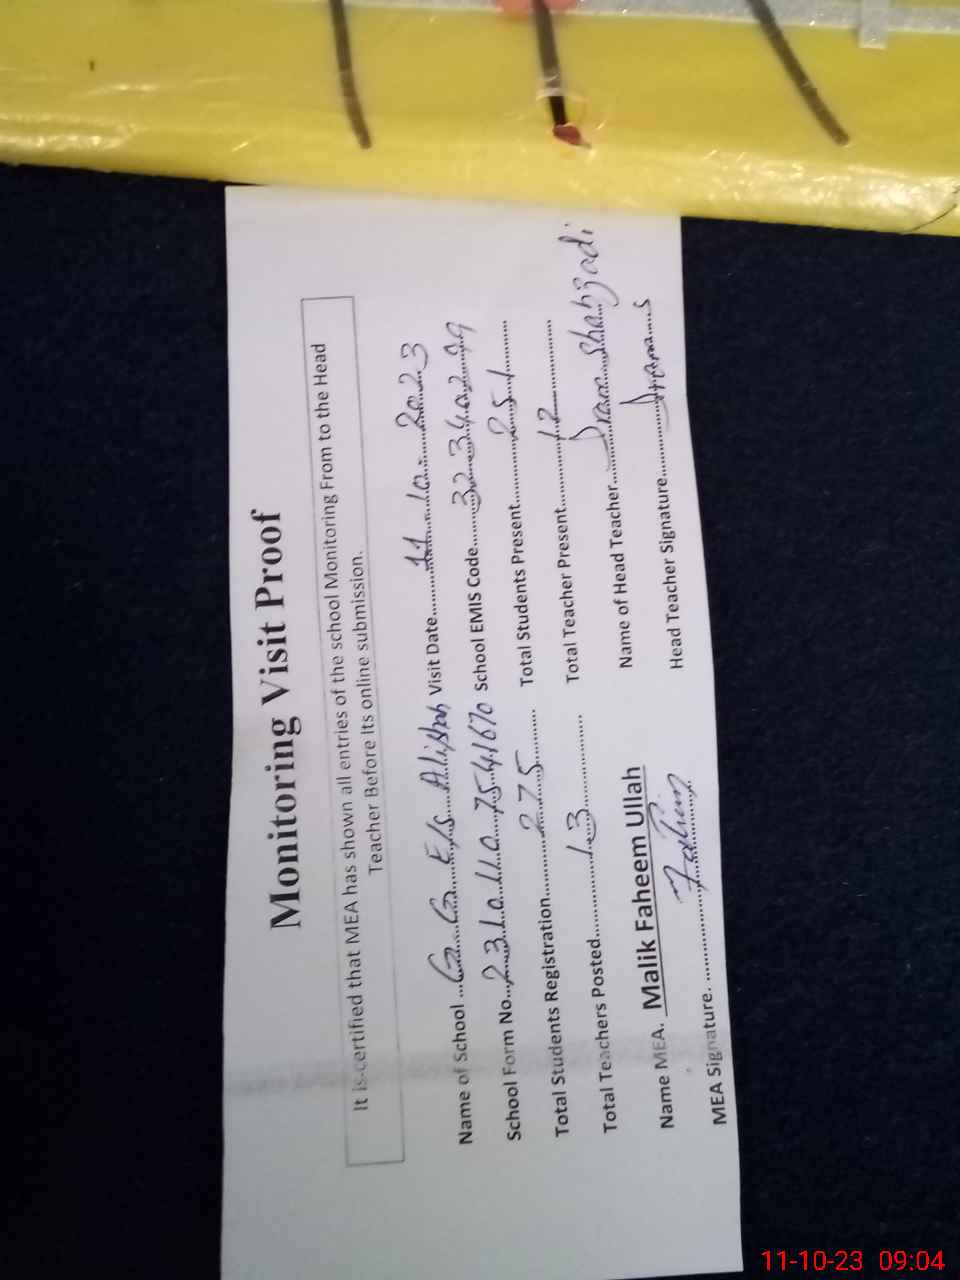 Monitoring Visit Proof
It is certified that MEA has shown all entries of the school Monitoring From to the Head
Teacher Before Its online submission.
Name of School ...G.G.E/S Alisha Visit Date 11-10-2023
School Form No...23101107541670 School EMIS Code 32340299
Total Students Registration 275 Total Students Present 251
Total Teachers Posted 13 Total Teacher Present 12
Name MEA. Malik Faheem Ullah Name of Head Teacher Iram Shahzadi
MEA Signature. Fahim Head Teacher Signature Iram S
11-10-23 09:04